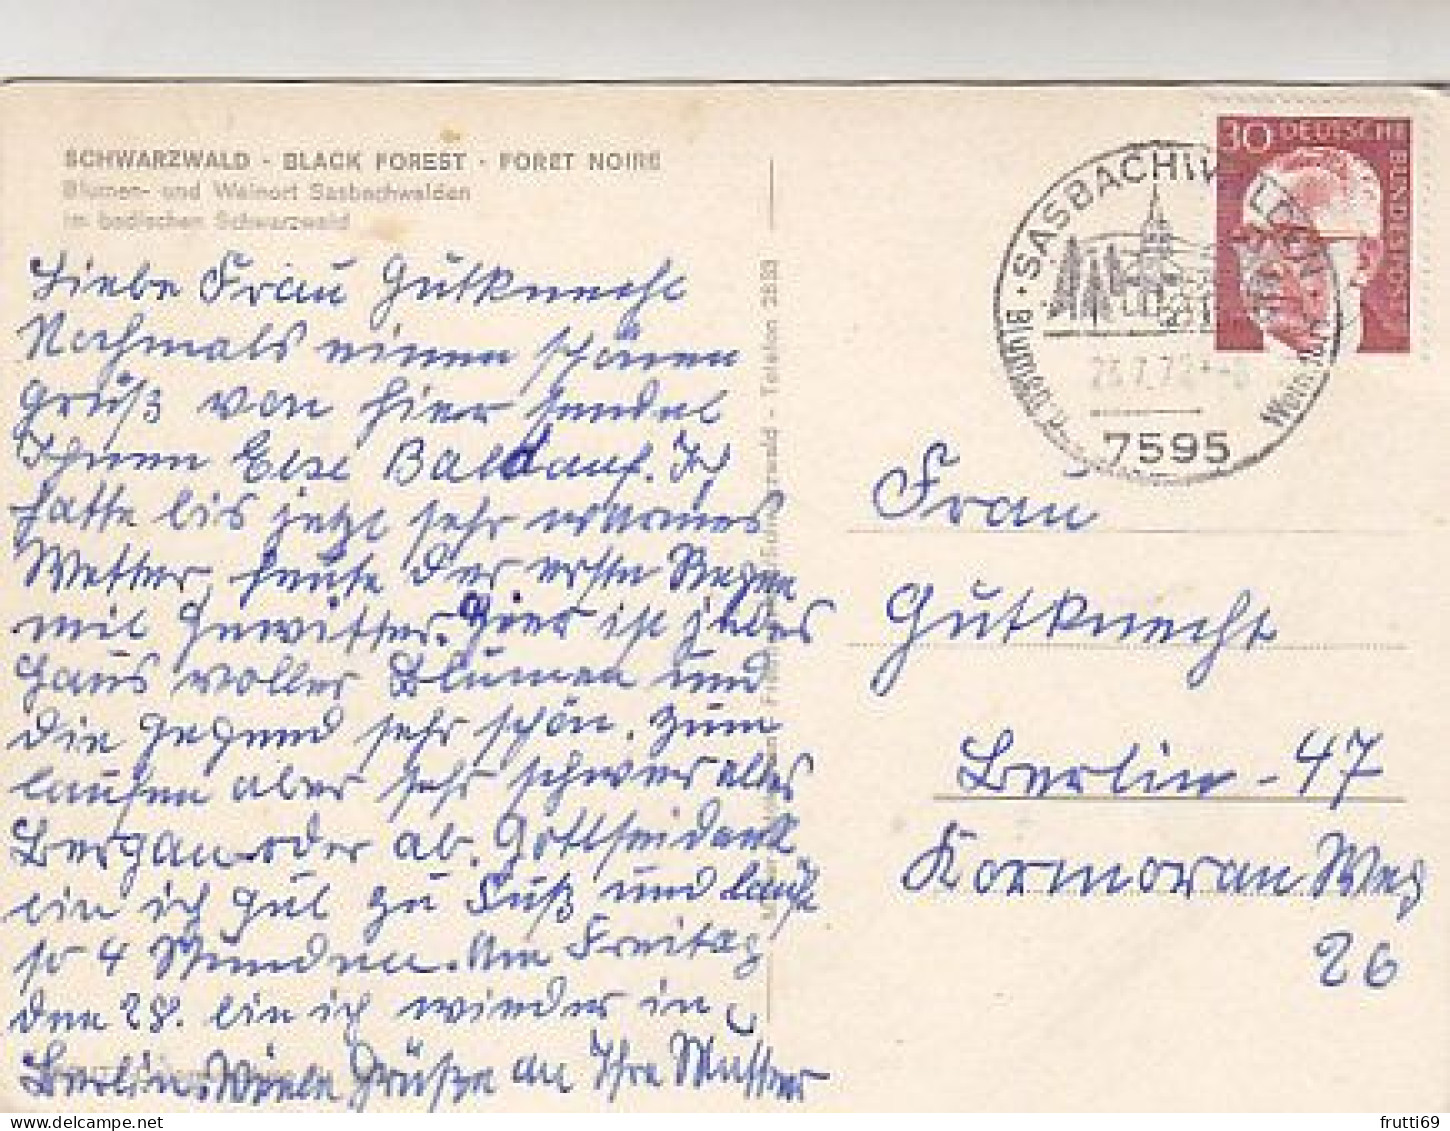 SCHWARZWALD - BLACK FOREST - FORET NOIRE
Blumen- und Weinort Sasbachwalden
im badischen Schwarzwald
Liebe Frau Gutknecht
Nochmals einen schönen
Gruß von hier sendet
Ihnen Else Baldauf. Ich
hatte bis jetzt sehr warmes
Wetter, heute der erste Regen
mit Gewitter. Hier ist jedes
Haus voller Blumen und
die Gegend sehr schön. Zum
laufen aber sehr schwer alles
Bergan oder ab. Gottseidank
bin ich gut zu Fuß und laufe
so 4 Stunden. Am Freitag
den 28. bin ich wieder in
Berlin. Viele Grüße an Ihre Mutter
Telefon 2533
30 DEUTSCHE BUNDESPOST
SASBACHWALDEN
Blumen- u.
7595
Frau
Gutknecht
Berlin-47
Kormoran Weg
26
frutti69